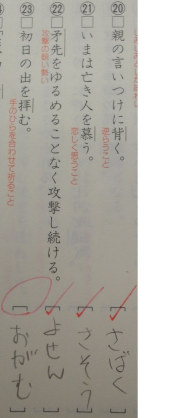 ⑳親の言いつけに背く。
逆らうこと
[さばく]
㉑いまは亡き人を慕う。
恋しく思うこと
[さそう]
㉒矛先をゆるめることなく攻撃し続ける。
攻撃の鋭い勢い
[よせん]
㉓初日の出を拝む。
手のひらを合わせて祈ること
[おがむ]